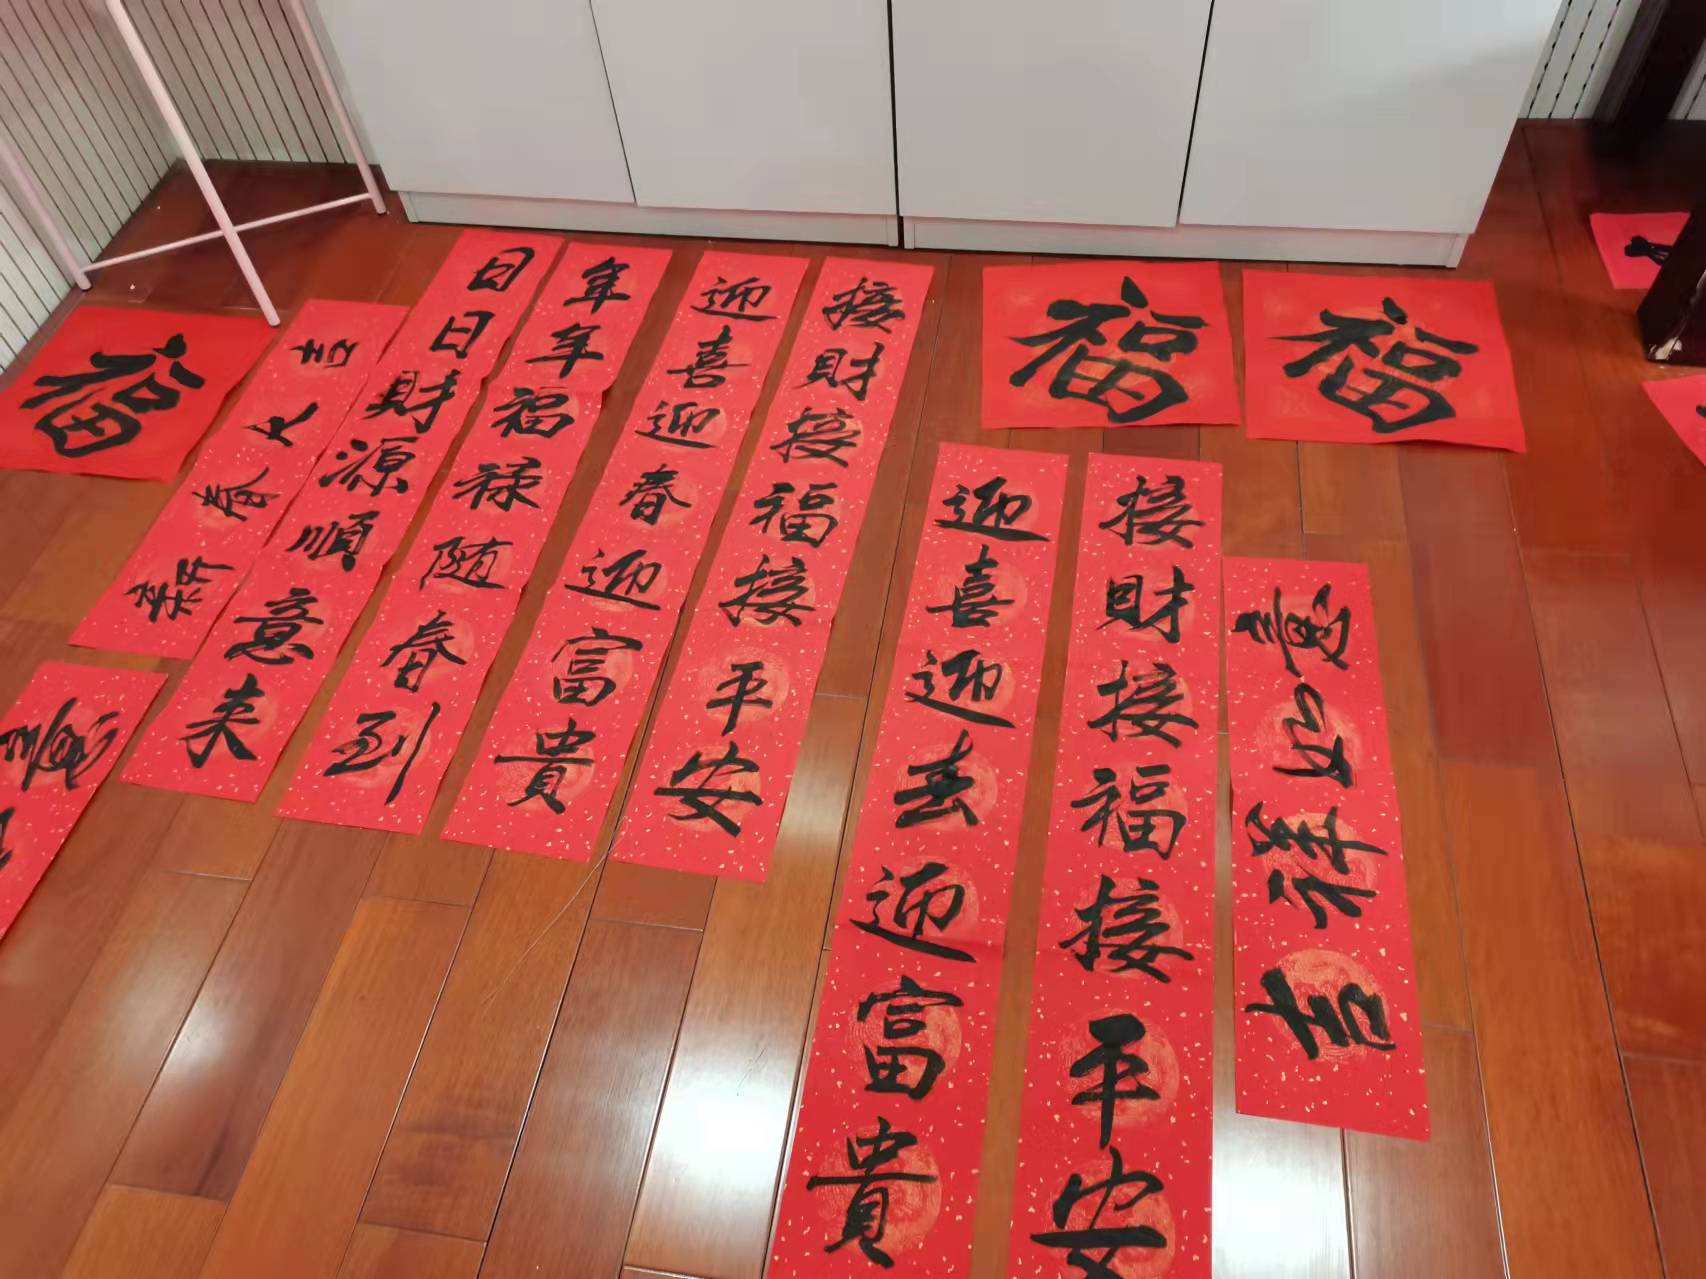 福
新春大吉
日日財源順意来
年年福禄随春到
迎喜迎春迎富貴
接財接福接平安
福
福
迎喜迎春迎富貴
接財接福接平安
吉祥如意
意